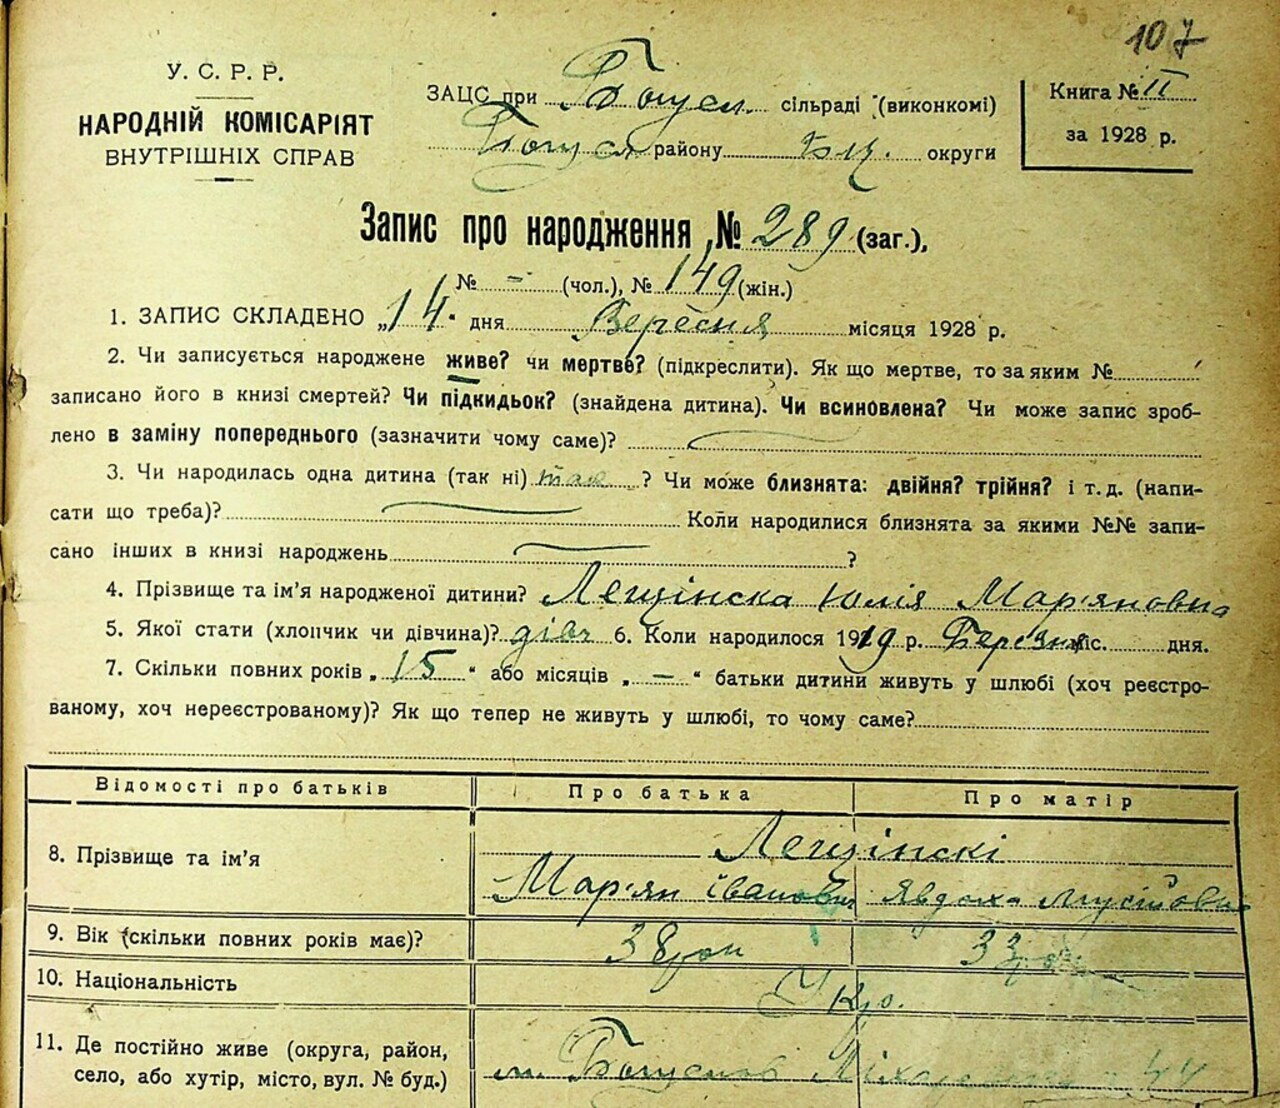 107
У. С. Р. Р.
НАРОДНІЙ КОМІСАРІЯТ
ВНУТРІШНІХ СПРАВ
ЗАЦС при Богусл. сільраді (виконкомі)
Богусл району Бц. округи
Книга № II
за 1928 р.
Запис про народження № 289 (заг.),
№ – (чол.), № 149 (жін.)
1. ЗАПИС СКЛАДЕНО „14" дня Вересня місяця 1928 р.
2. Чи записується народжене живе? чи мертве? (підкреслити). Як що мертве, то за яким №
записано його в книзі смертей? Чи підкидьок? (знайдена дитина). Чи всиновлена? Чи може запис зроб-
лено в заміну попереднього (зазначити чому саме)?
3. Чи народилась одна дитина (так ні) так ? Чи може близнята: двійня? трійня? і т. д. (напи-
сати що треба)? Коли народилися близнята за якими №№ запи-
сано інших в книзі народжень ?
4. Прізвище та ім'я народженої дитини? Лещінска Юлія Мар'яновна
5. Якої стати (хлопчик чи дівчина)? дівч 6. Коли народилося 1919 р. Березня міс. дня.
7. Скільки повних років „15" або місяців „–" батьки дитини живуть у шлюбі (хоч реєстро-
ваному, хоч нереєстрованому)? Як що тепер не живуть у шлюбі, то чому саме?
Відомості про батьків Про батька Про матір
8. Прізвище та ім'я Лещінскі
Мар'ян Іванович Явдоха
9. Вік (скільки повних років має)? 38 рок 33 рок.
10. Національність Укр.
11. Де постійно живе (округа, район,
село, або хутір, місто, вул. № буд.) м. Богуслав 44